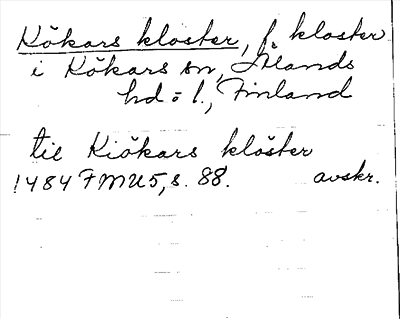 Kökars kloster, f. kloster
i Kökars sn, Ålands
hd o l., Finland
till Kiökars klöster
1484 FMU5, s. 88. avskr.